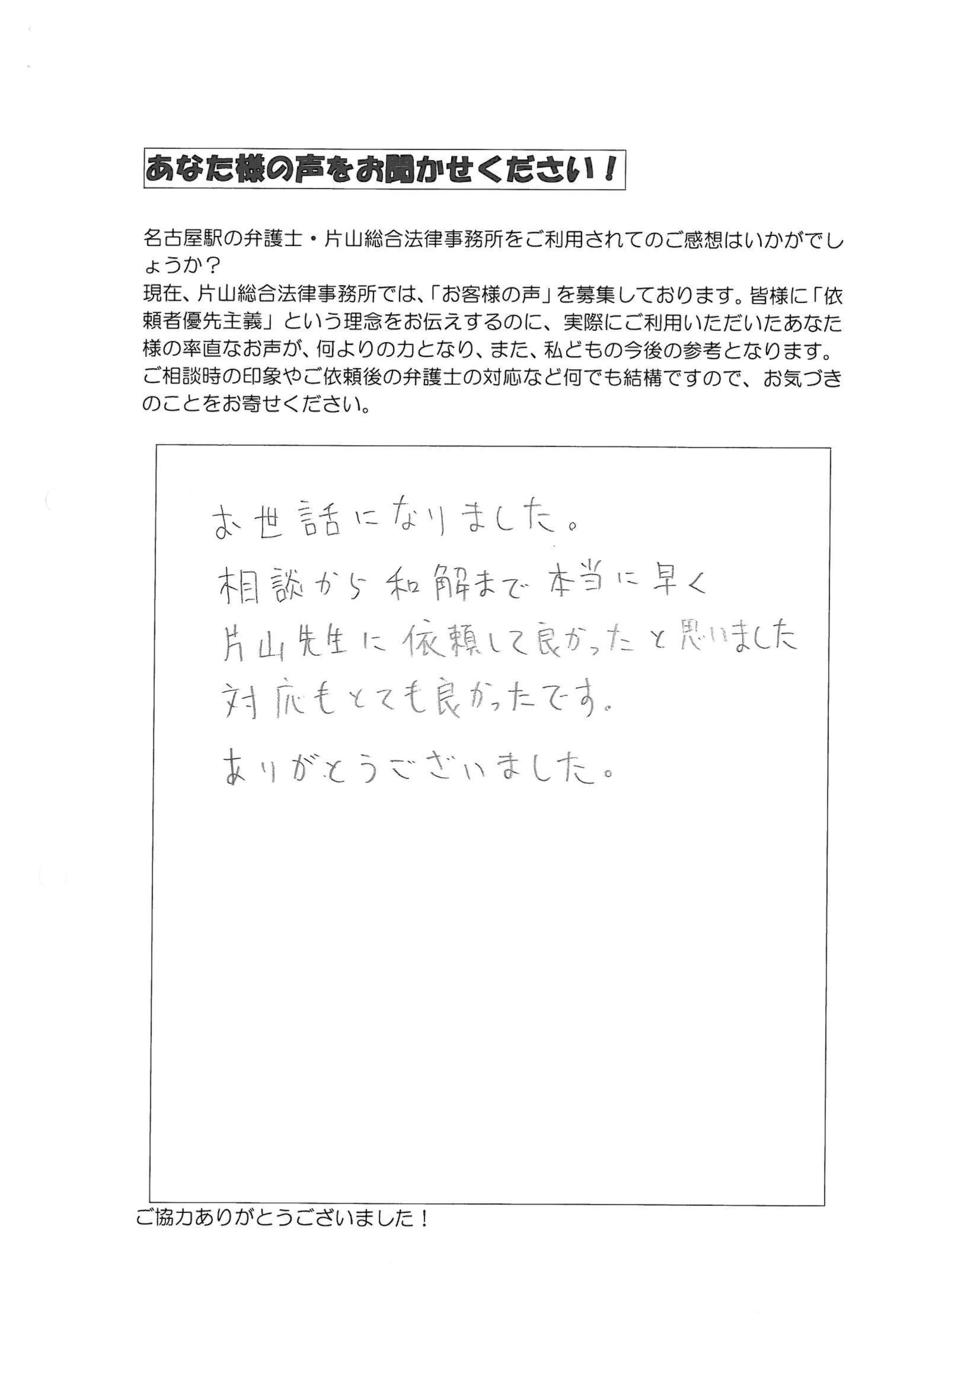 あなた様の声をお聞かせください！
名古屋駅の弁護士・片山総合法律事務所をご利用されてのご感想はいかがでし
ょうか？
現在、片山総合法律事務所では、「お客様の声」を募集しております。皆様に「依
頼者優先主義」という理念をお伝えするのに、実際にご利用いただいたあなた
様の率直なお声が、何よりの力となり、また、私どもの今後の参考となります。
ご相談時の印象やご依頼後の弁護士の対応など何でも結構ですので、お気づき
のことをお寄せください。
お世話になりました。
相談から和解まで本当に早く
片山先生に依頼して良かったと思いました
対応もとても良かったです。
ありがとうございました。
ご協力ありがとうございました！